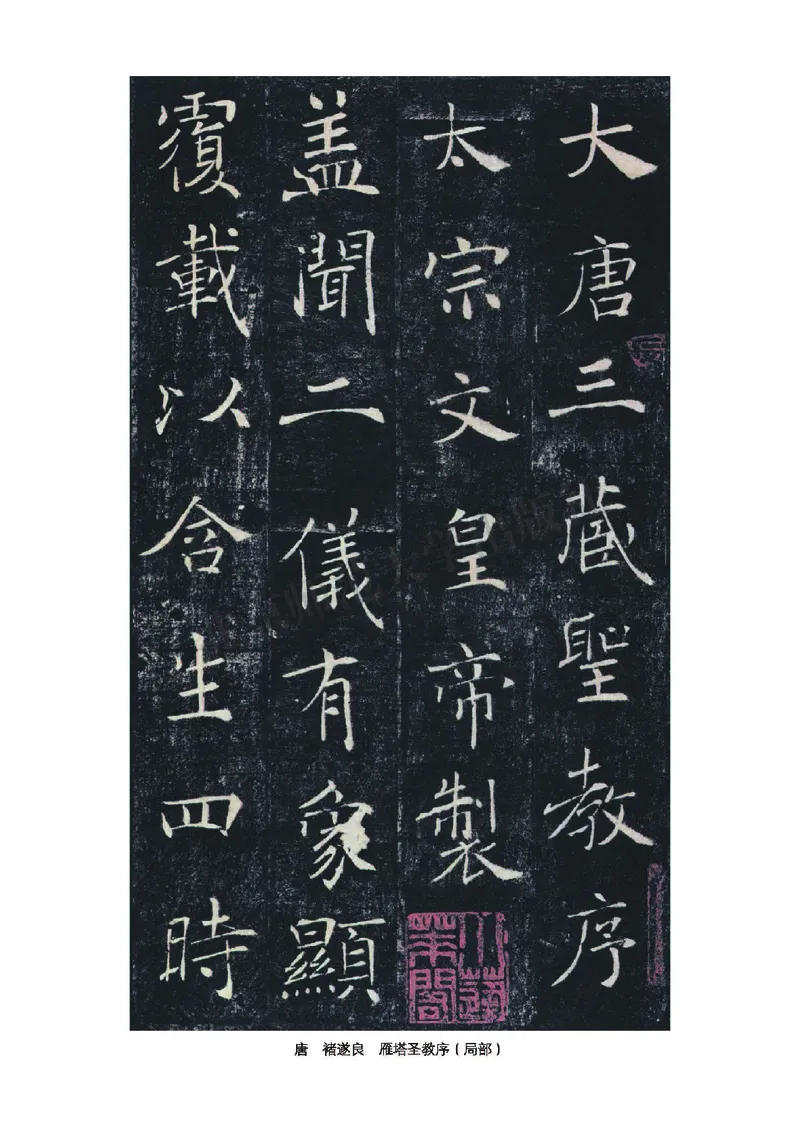 大唐三藏聖教序
太宗文皇帝製
盖聞二儀有象顯
覆載以含生四時
唐 褚遂良 雁塔圣教序（局部）